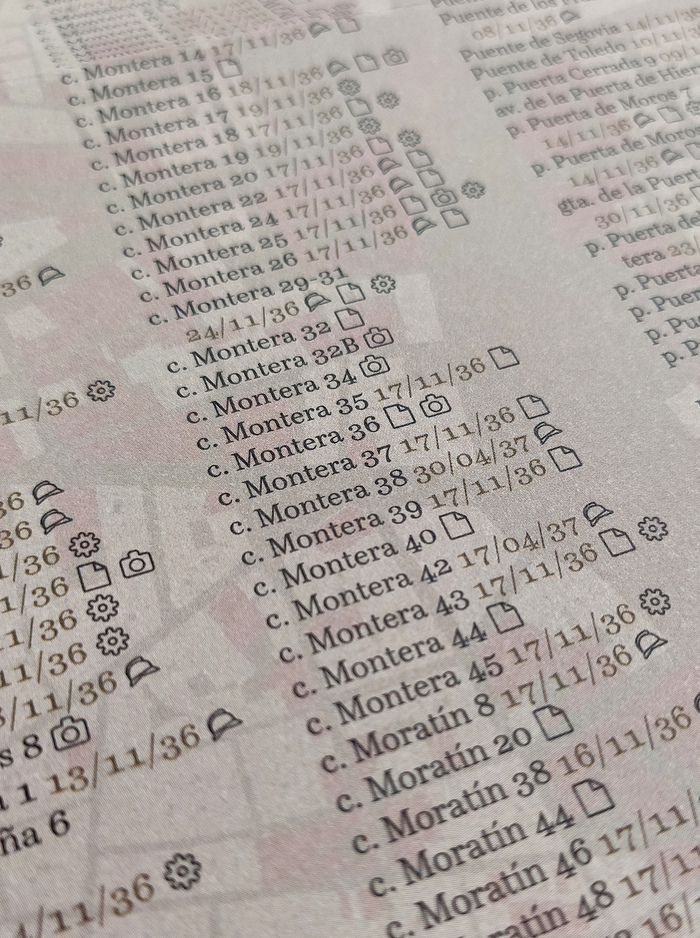 c. Montera 14 17/11/36
c. Montera 15
c. Montera 16 18/11/36
c. Montera 17 19/11/36
c. Montera 18 17/11/36
c. Montera 19 19/11/36
c. Montera 20 17/11/36
c. Montera 22 17/11/36
c. Montera 24 17/11/36
c. Montera 25 17/11/36
c. Montera 26 17/11/36
c. Montera 29-31
24/11/36
c. Montera 32
c. Montera 32B
c. Montera 34
c. Montera 35 17/11/36
c. Montera 36
c. Montera 37 17/11/36
c. Montera 38 30/04/37
c. Montera 39 17/11/36
c. Montera 40
c. Montera 42 17/04/37
c. Montera 43 17/11/36
c. Montera 44
c. Montera 45 17/11/36
c. Moratín 8 17/11/36
c. Moratín 20
c. Moratín 38 16/11/36
c. Moratín 44
c. Moratín 46 17/11/
ratín 48 17/11
16/
36
11/36
36
36
/36
1/36
1/36
11/36
/11/36
s 8
1 13/11/36
ña 6
/11/36
Puente de los
08/11/36
Puente de Segovia 14/11/3
Puente de Toledo 10/11/
p. Puerta Cerrada 9 09/
av. de la Puerta de Hier
p. Puerta de Moros 7
14/11/36
p. Puerta de Moro
14/11/36
gta. de la Puert
30/11/36
p. Puerta de
tera 23/
p. Puerta
p. Puer
p. Pue
p. P